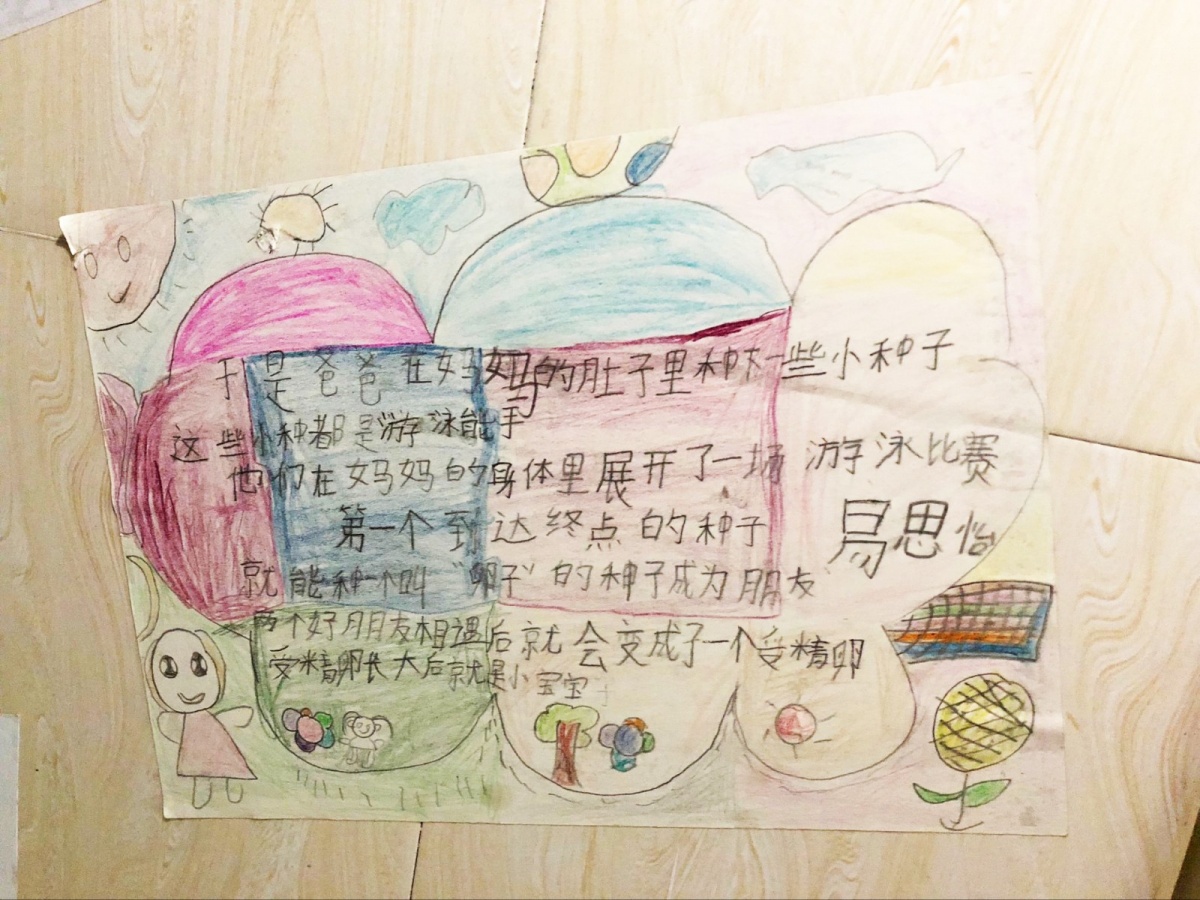 于是爸爸在妈妈的肚子里种下一些小种子
这些小种都是游泳能手
他们在妈妈的身体里展开了一场游泳比赛
第一个到达终点的种子
易思怡
就能和一个叫“卵子”的种子成为朋友
两个好朋友相遇后就会变成了一个受精卵
受精卵长大后就是小宝宝